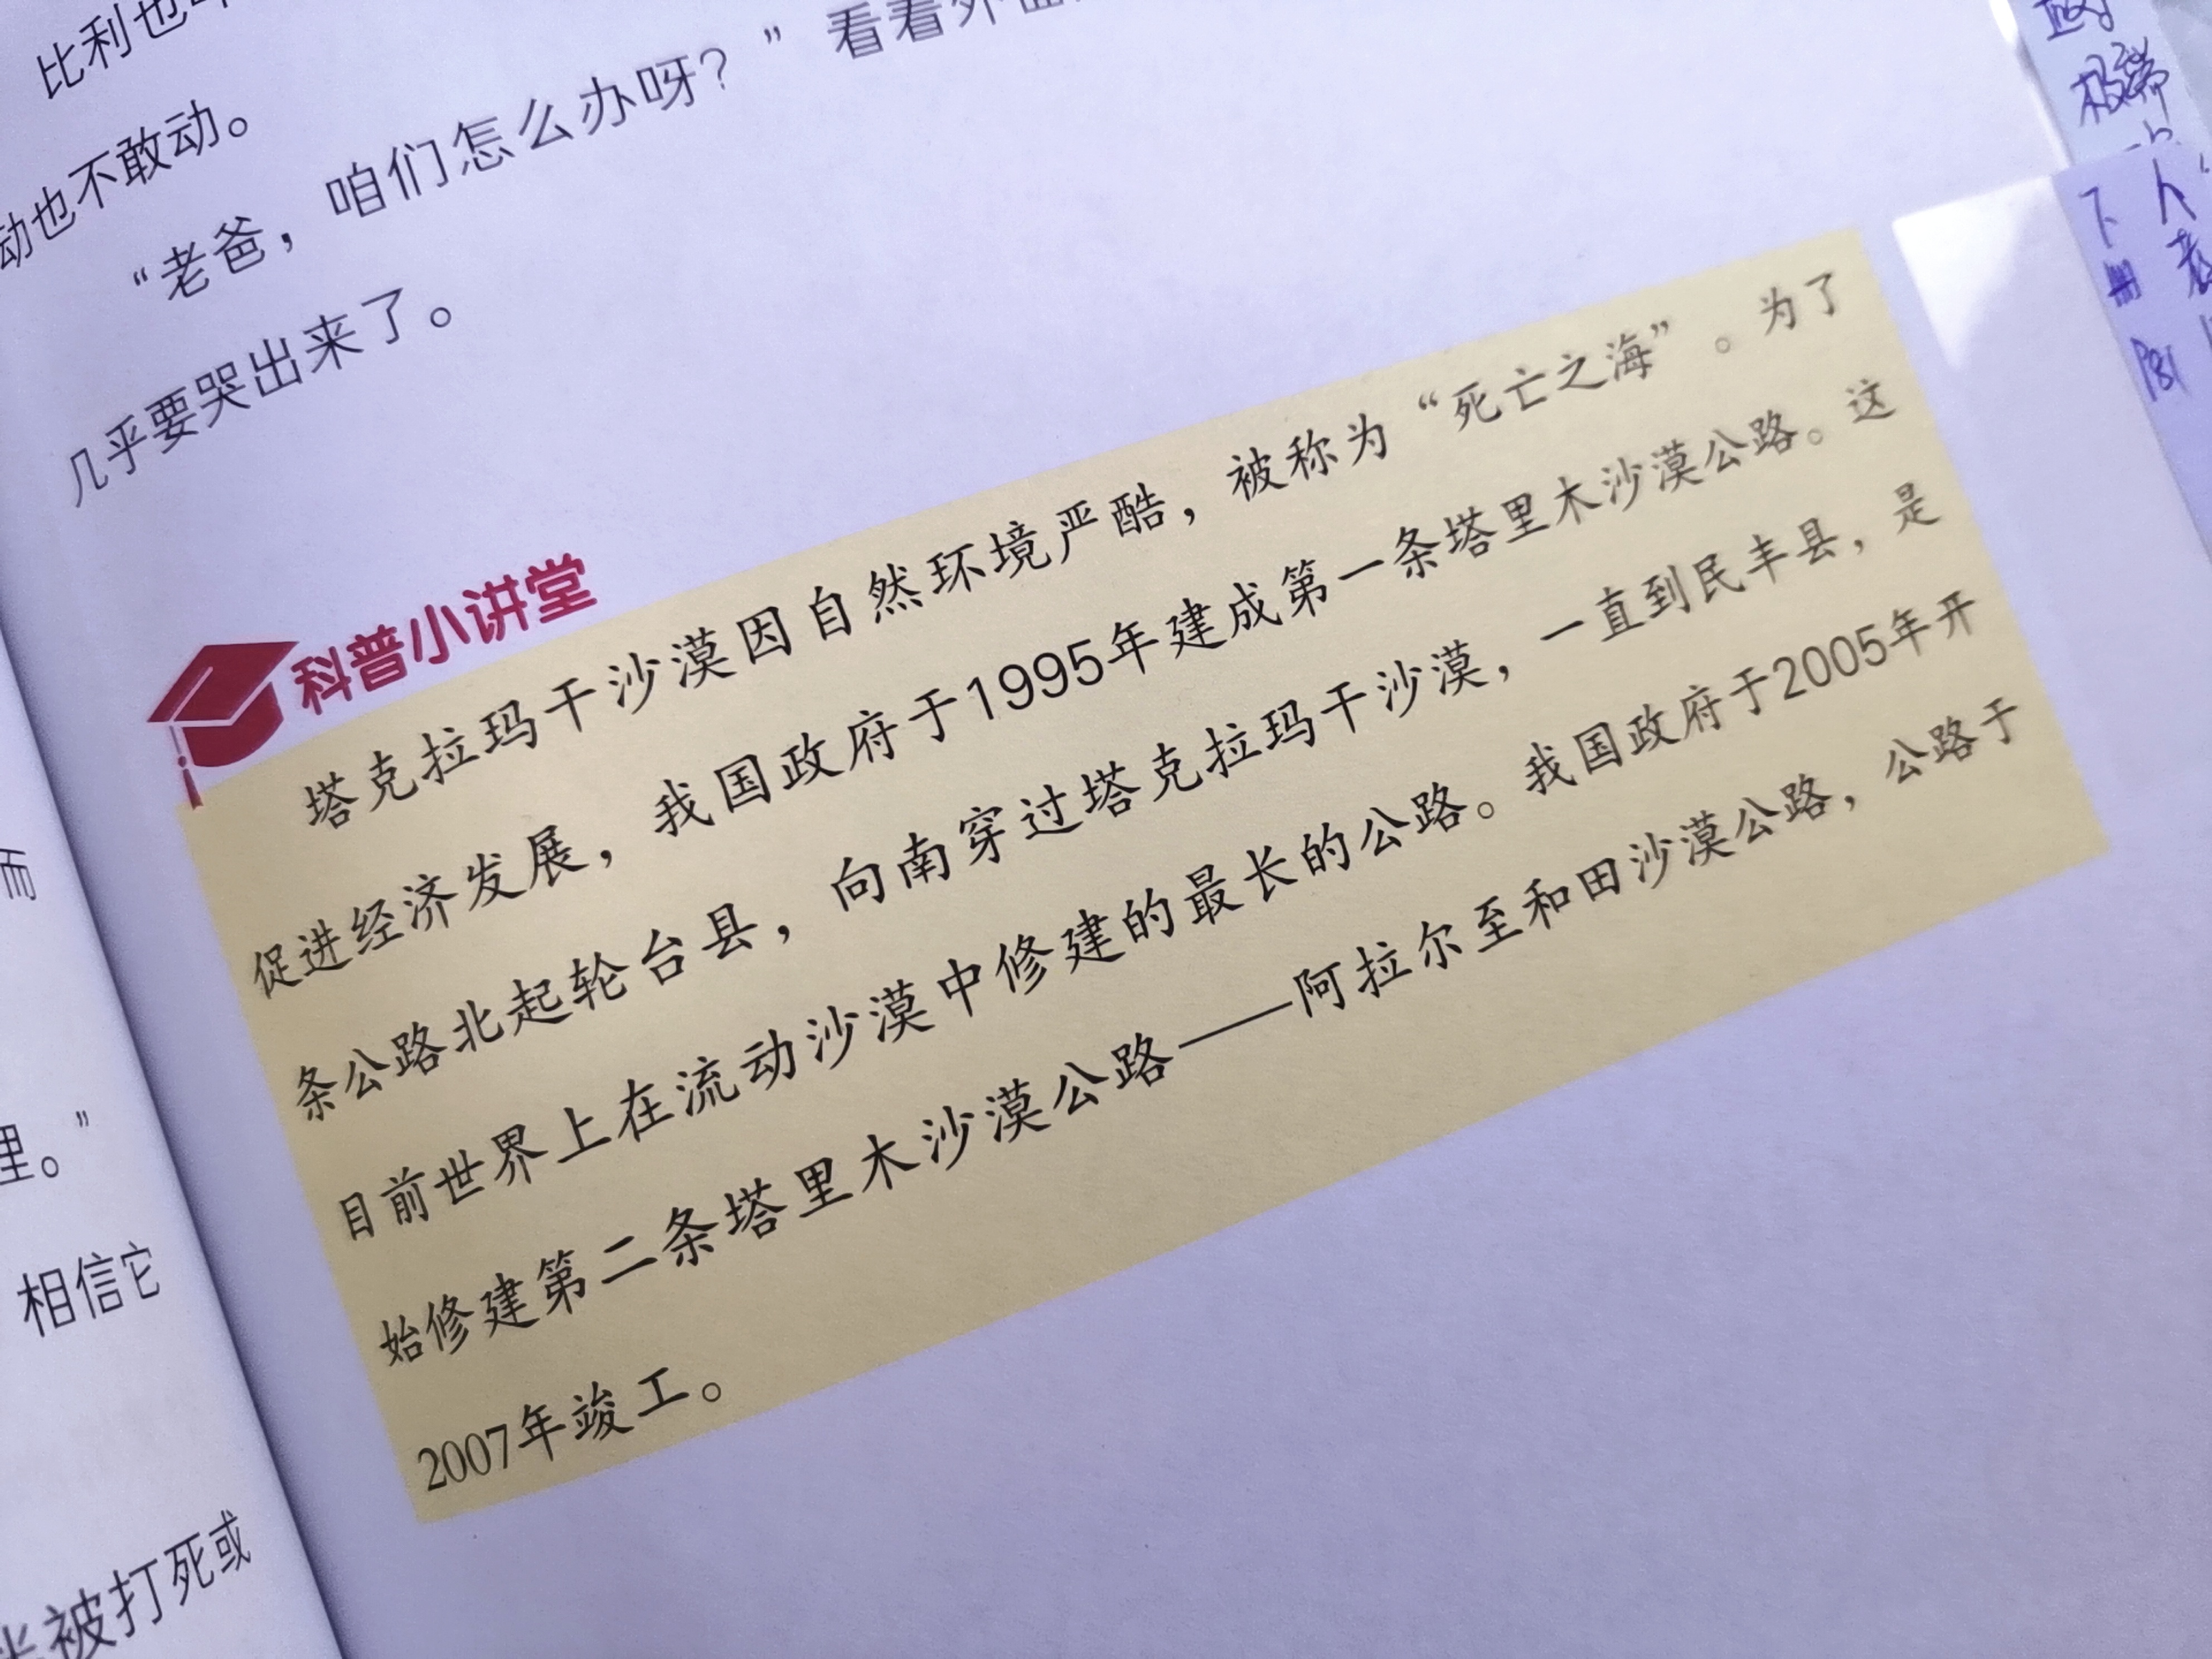 比利也
动也不敢动。
“老爸，咱们怎么办呀？”看看外
几乎要哭出来了。
科普小讲堂
塔克拉玛干沙漠因自然环境严酷，被称为“死亡之海”。为了
促进经济发展，我国政府于1995年建成第一条塔里木沙漠公路。这
条公路北起轮台县，向南穿过塔克拉玛干沙漠，一直到民丰县，是
目前世界上在流动沙漠中修建的最长的公路。我国政府于2005年开
始修建第二条塔里木沙漠公路——阿拉尔至和田沙漠公路，公路于
2007年竣工。
而
里。”
相信它
被打死或
下册
人